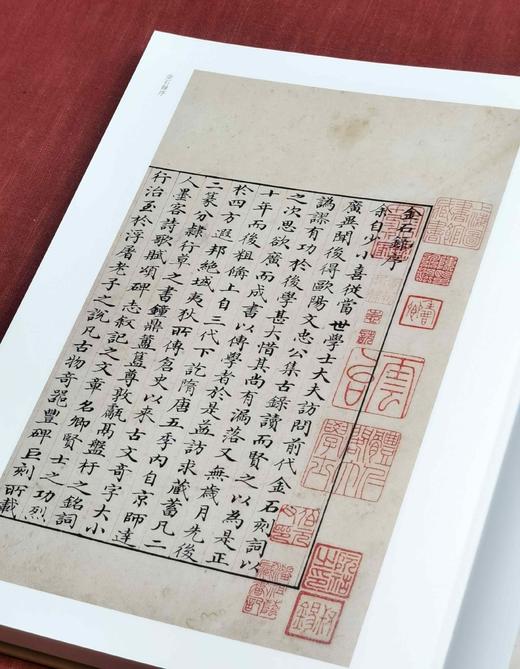 金石錄序
金石錄序
余自少小喜從當世學士大夫訪問前代金石刻詞以
廣異聞後得歐陽文忠公集古錄讀而賢之以為是正
譌謬有功於後學甚大惜其尚有漏落又無歲月先後
之次思欲廣而成書以傳學者於是益訪求藏蓄凡二
十年而後粗備上自三代下訖隋唐五季內自京師達
於四方遐邦絕域夷狄所傳倉史以來古文奇字大小
二篆分隸行草之書鐘鼎簠簋尊敦甗鬲盤杅之銘詞
人墨客詩歌賦頌碑志敘記之文章名卿賢士之功烈
行治至於浮屠老子之說凡古物奇器豐碑巨刻所載